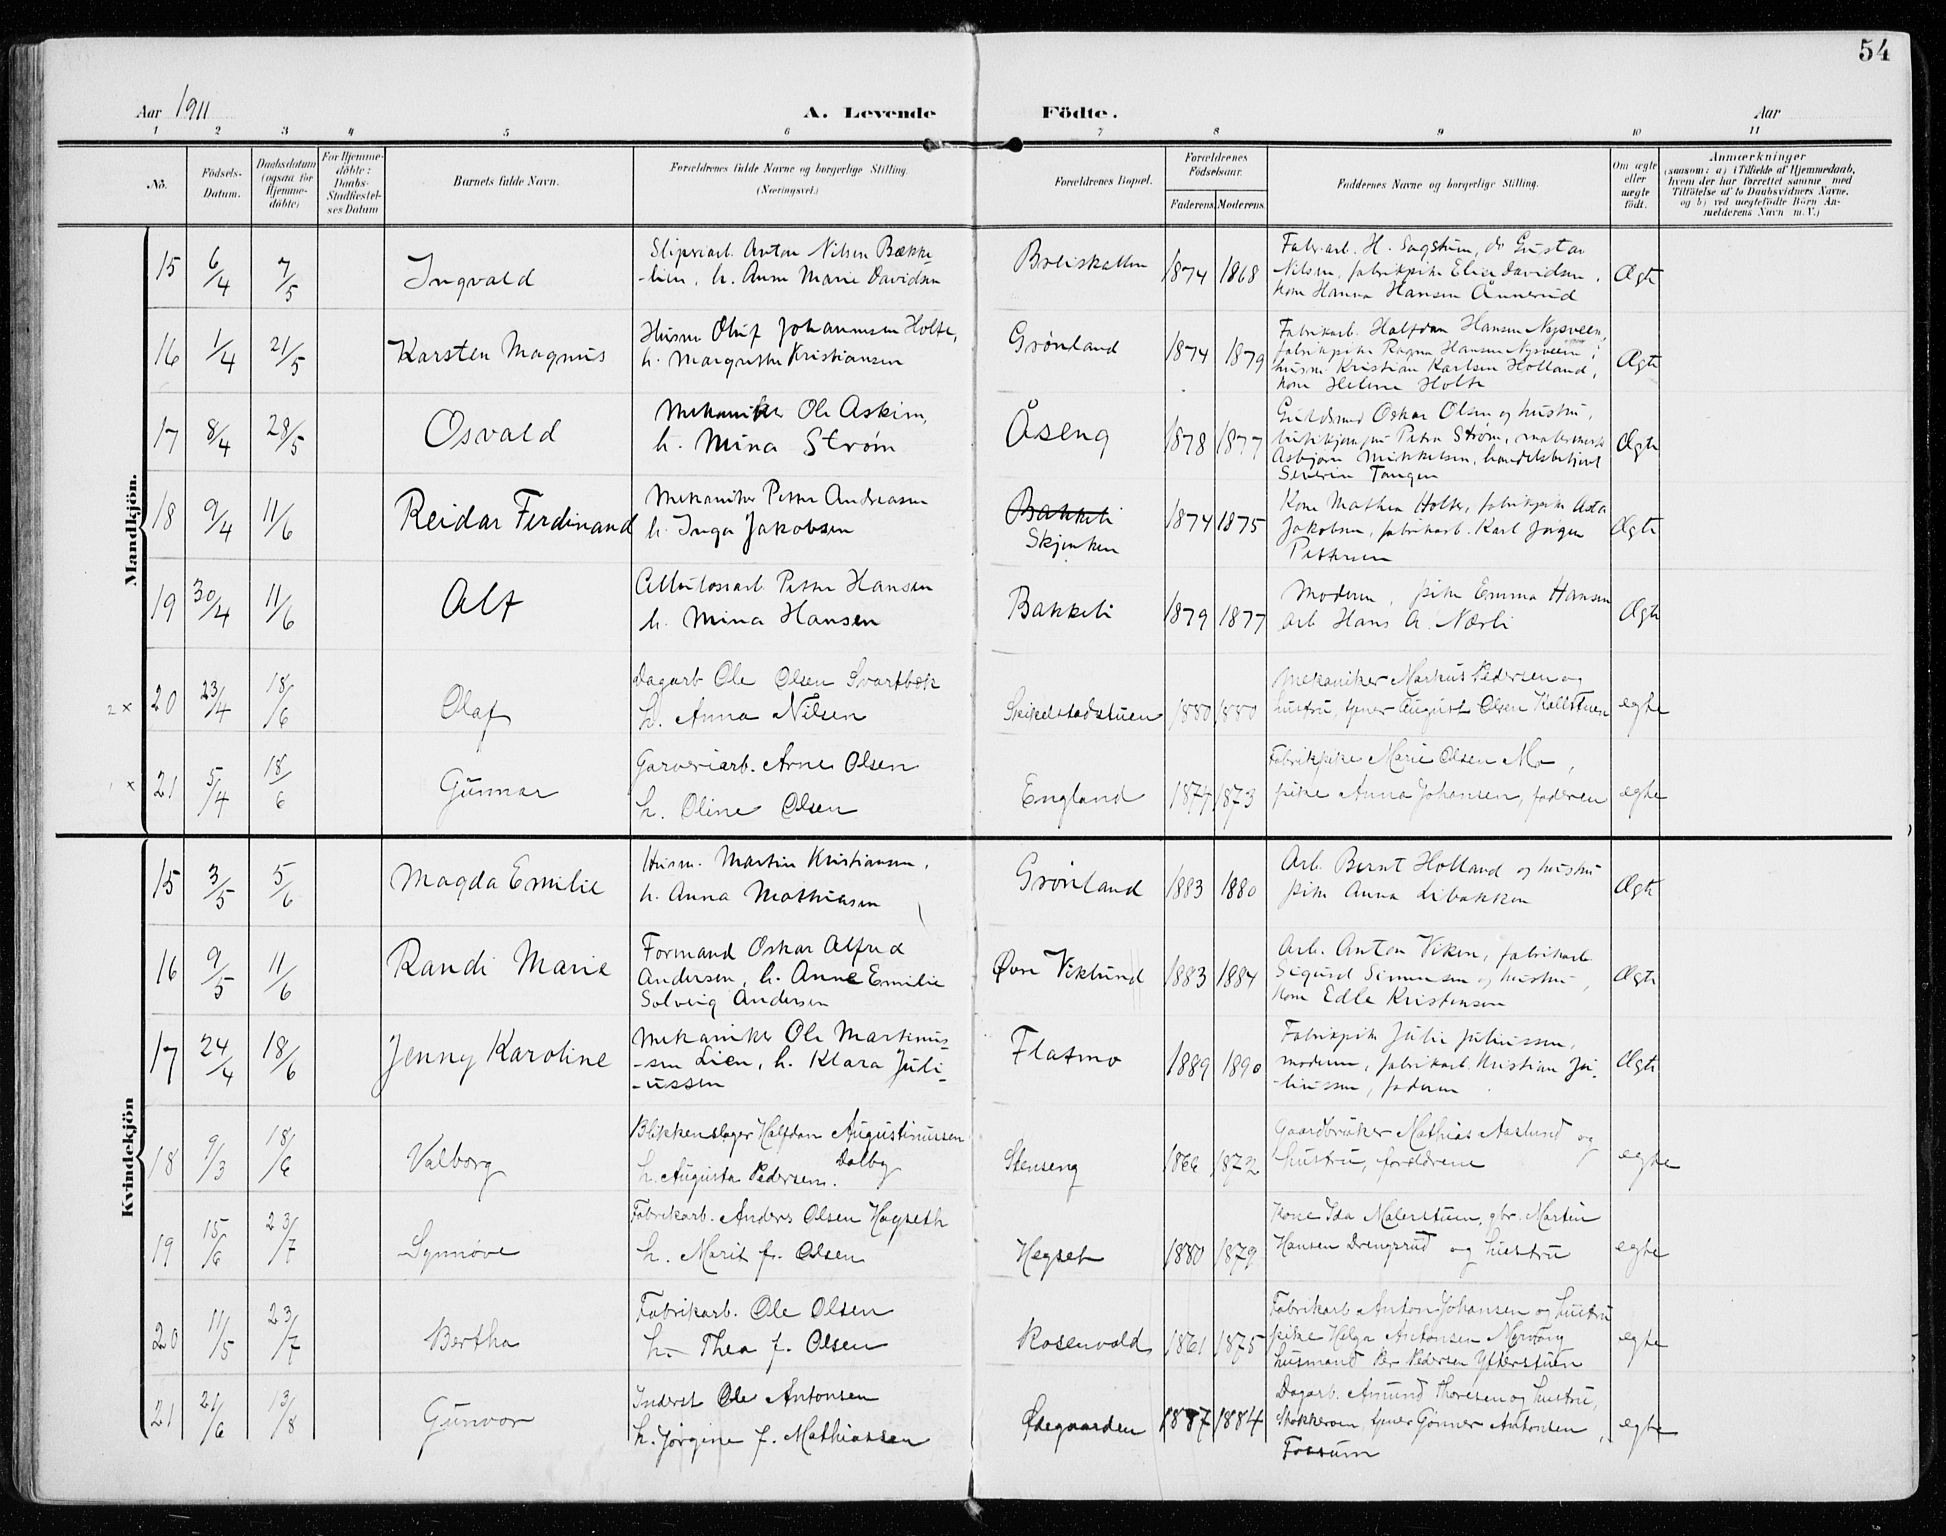 54
Aar 1911 A. Levende Födte. Aar
1 2 3 4 5 6 7 8 9 10 11
No. Födsels-Datum. Daabsdatum (ogsaa for Hjemme-döbte) For Hjemme-döbte: Daabs-Stadfæstel-ses Datum Barnets fulde Navn. Forældrenes fulde Navne og borgerlige Stilling. (Næringsvei.) Forældrenes Bopæl. Forældrenes Födselsaar. Faderens Moderens Faddernes Navne og borgerlige Stilling. Om ægte eller uægte födt. Anmærkninger (saasom: a) i Tilfælde af Hjemmedaab, hvem der har forrettet samme med Tilföielse af to Daabsvidners Navne, og b) ved uægtefödte Börn Anmelderens Navn m. V.)
Mandkjön.
15 6/4 7/5 Ingvald
Sliperiarb. Anton Nilsen Bække
-lien, h. Anne Marie Davidsen
1874 1868
Fabr.arb. H. Sagstuen, do Gustav
Nilsen, fabrikpike Elise Davidsen,
kone Hanna Hansen Ånnerud
Ægte
16 1/4 21/5 Karsten Magnus
Husm Oluf Johannesen Holte,
h. Margrethe Kristiansen
Grønland 1874 1879
Fabrikarb. Halfdan Hansen Nysveen,
fabrikpike Ragna Hansen Nysveen,
husm Kristian Karlsen Holland,
kone Helene Holte
Ægte
17 8/4 28/5 Osvald
Mekaniker Ole Askim,
h. Mina Strøm
Åseng 1878 1877
Guldsmed Oskar Olsen og hustru,
Petra Strøm,
Asbjørn Mikkelsen, handelsbetjent
Severin Tangen
Ægte
18 9/4 11/6 Reidar Ferdinand
Mekaniker Petter Andreasen
h. Inga Jakobsen
Bakkeli
Skjenken
1874 1875
Kone Mathea Holter, fabrikpike Asta
Jakobsen, fabrikarb. Karl Jørgen
Pettersen
Ægte
19 30/4 11/6 Alf
Cellulosearb Petter Hansen
h. Mina Hansen
Bakkeli 1879 1877
Moderen, pike Emma Hansen
arb Hans A. Nærli
Ægte
2 x 20 23/4 18/6 Olaf
Dagarb Ole Olsen Svartbæk
h. Anna Nilsen
Skikelstadstuen 1880 1880
Mekaniker Markus Pedersen og
hustru, tjener August Olsen Kallstuen
egte
1 x 21 5/4 18/6 Gunnar
Garveriarb. Arne Olsen
h. Oline Olsen
England 1877 1873
Fabrikpike Marie Olsen Mo,
pike Anna Johansen, faderen
egte
Kvindekjön
15 3/5 5/6 Magda Emilie
Husm. Martin Kristiansen,
h. Anna Mathiasen
Grønland 1883 1880
Arb. Bernt Holland og hustru
pike Anna Libakken
Ægte
16 9/5 11/6 Randi Marie
Formand Oskar Alfred
Andersen, h. Anne Emilie
Solveig Andersen
Øvre Viklund 1883 1884
Arb. Anton Viken, fabrikarb
Sigurd Simensen og hustru,
kone Edle Kristensen
Ægte
17 24/4 18/6 Jenny Karoline
Mekaniker Ole Martinus-
-sen Lien, h. Klara Juli-
-ussen
Flatmo 1889 1890
Fabrikpike Julie Juliussen,
moderen, fabrikarb. Kristian Ju-
-liussen, faderen
Ægte
18 9/3 18/6 Valborg
Blikkenslager Halfdan Augustinussen
Dalby
h. Augusta Pedersen.
Stenseng 1866 1872
Gaardbruker Mathias Aaslund og
hustru, forældrene
egte
19 15/6 23/7 Synnøve
Fabrikarb. Anders Olsen Hagseth
h. Marit f. Olsen
Hegset 1880 1879
Kone Ida Malerstuen, gbr. Martin
Hansen Drengsrud og hustru
egte
20 11/5 23/7 Bertha
Fabrikarb. Ole Olsen
h. Thea f. Olsen
Rosenvold 1861 1875
Fabrikarb Anton Johansen og hustru
pike Helga Antonsen
husmand Per Pedersen Yfterstuen
egte
21 21/6 13/8 Gunvor
Inderst Ole Antonsen
h. Jørgine f. Mathiassen
Ødegaarden 1887 1884
Dagarb. Amund Thoresen og hustru,
Stokkeroen, tjener Gunner Antonsen,
Fossum
egte